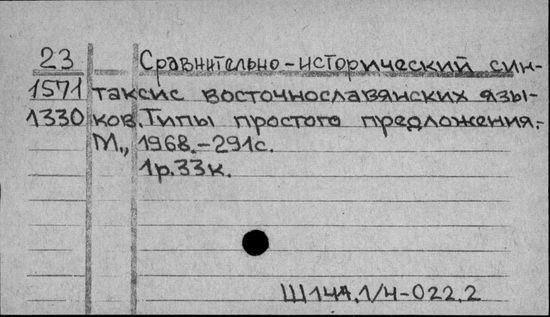 23 Сравнительно-исторический син-
1571 таксис восточнославянских язы-
1330 ков. Типы простого предложения.-
М., 1968.-291с.
1р.33к.
Ш144.1/4-022.2